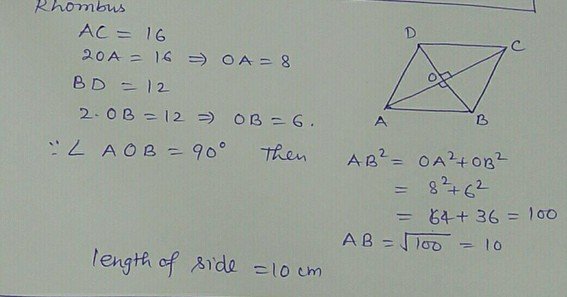 Rhombus
AC = 16
2OA = 16 ⇒ OA = 8
BD = 12
2·OB = 12 ⇒ OB = 6.
∵ ∠ AOB = 90° Then
D
C
O
A
B
AB² = OA² + OB²
= 8² + 6²
= 64 + 36 = 100
AB = √100 = 10
length of side = 10 cm